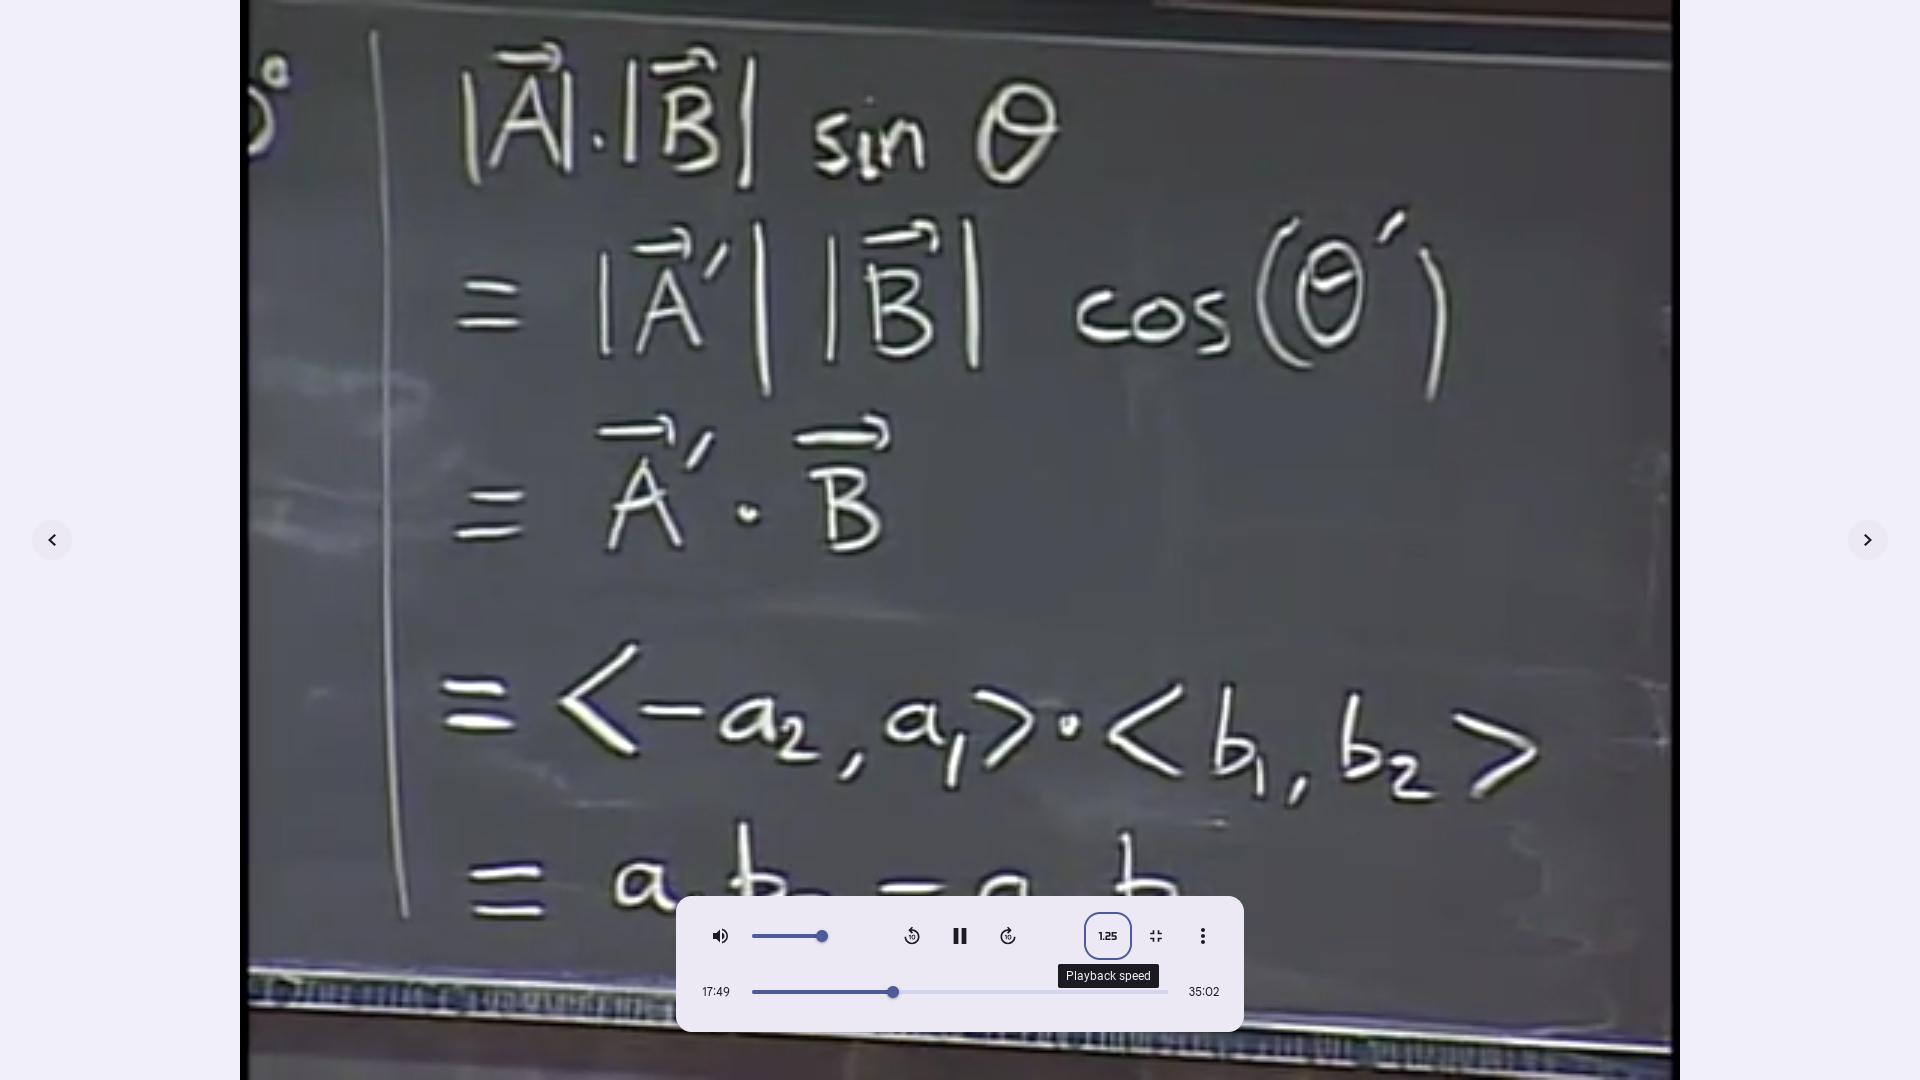 |A⃗|·|B⃗| sin θ
= |A⃗′| |B⃗| cos(θ′)
= A⃗′ · B⃗
= <-a₂, a₁> · <b₁, b₂>
= a b - a b
1.25
Playback speed
17:49
35:02